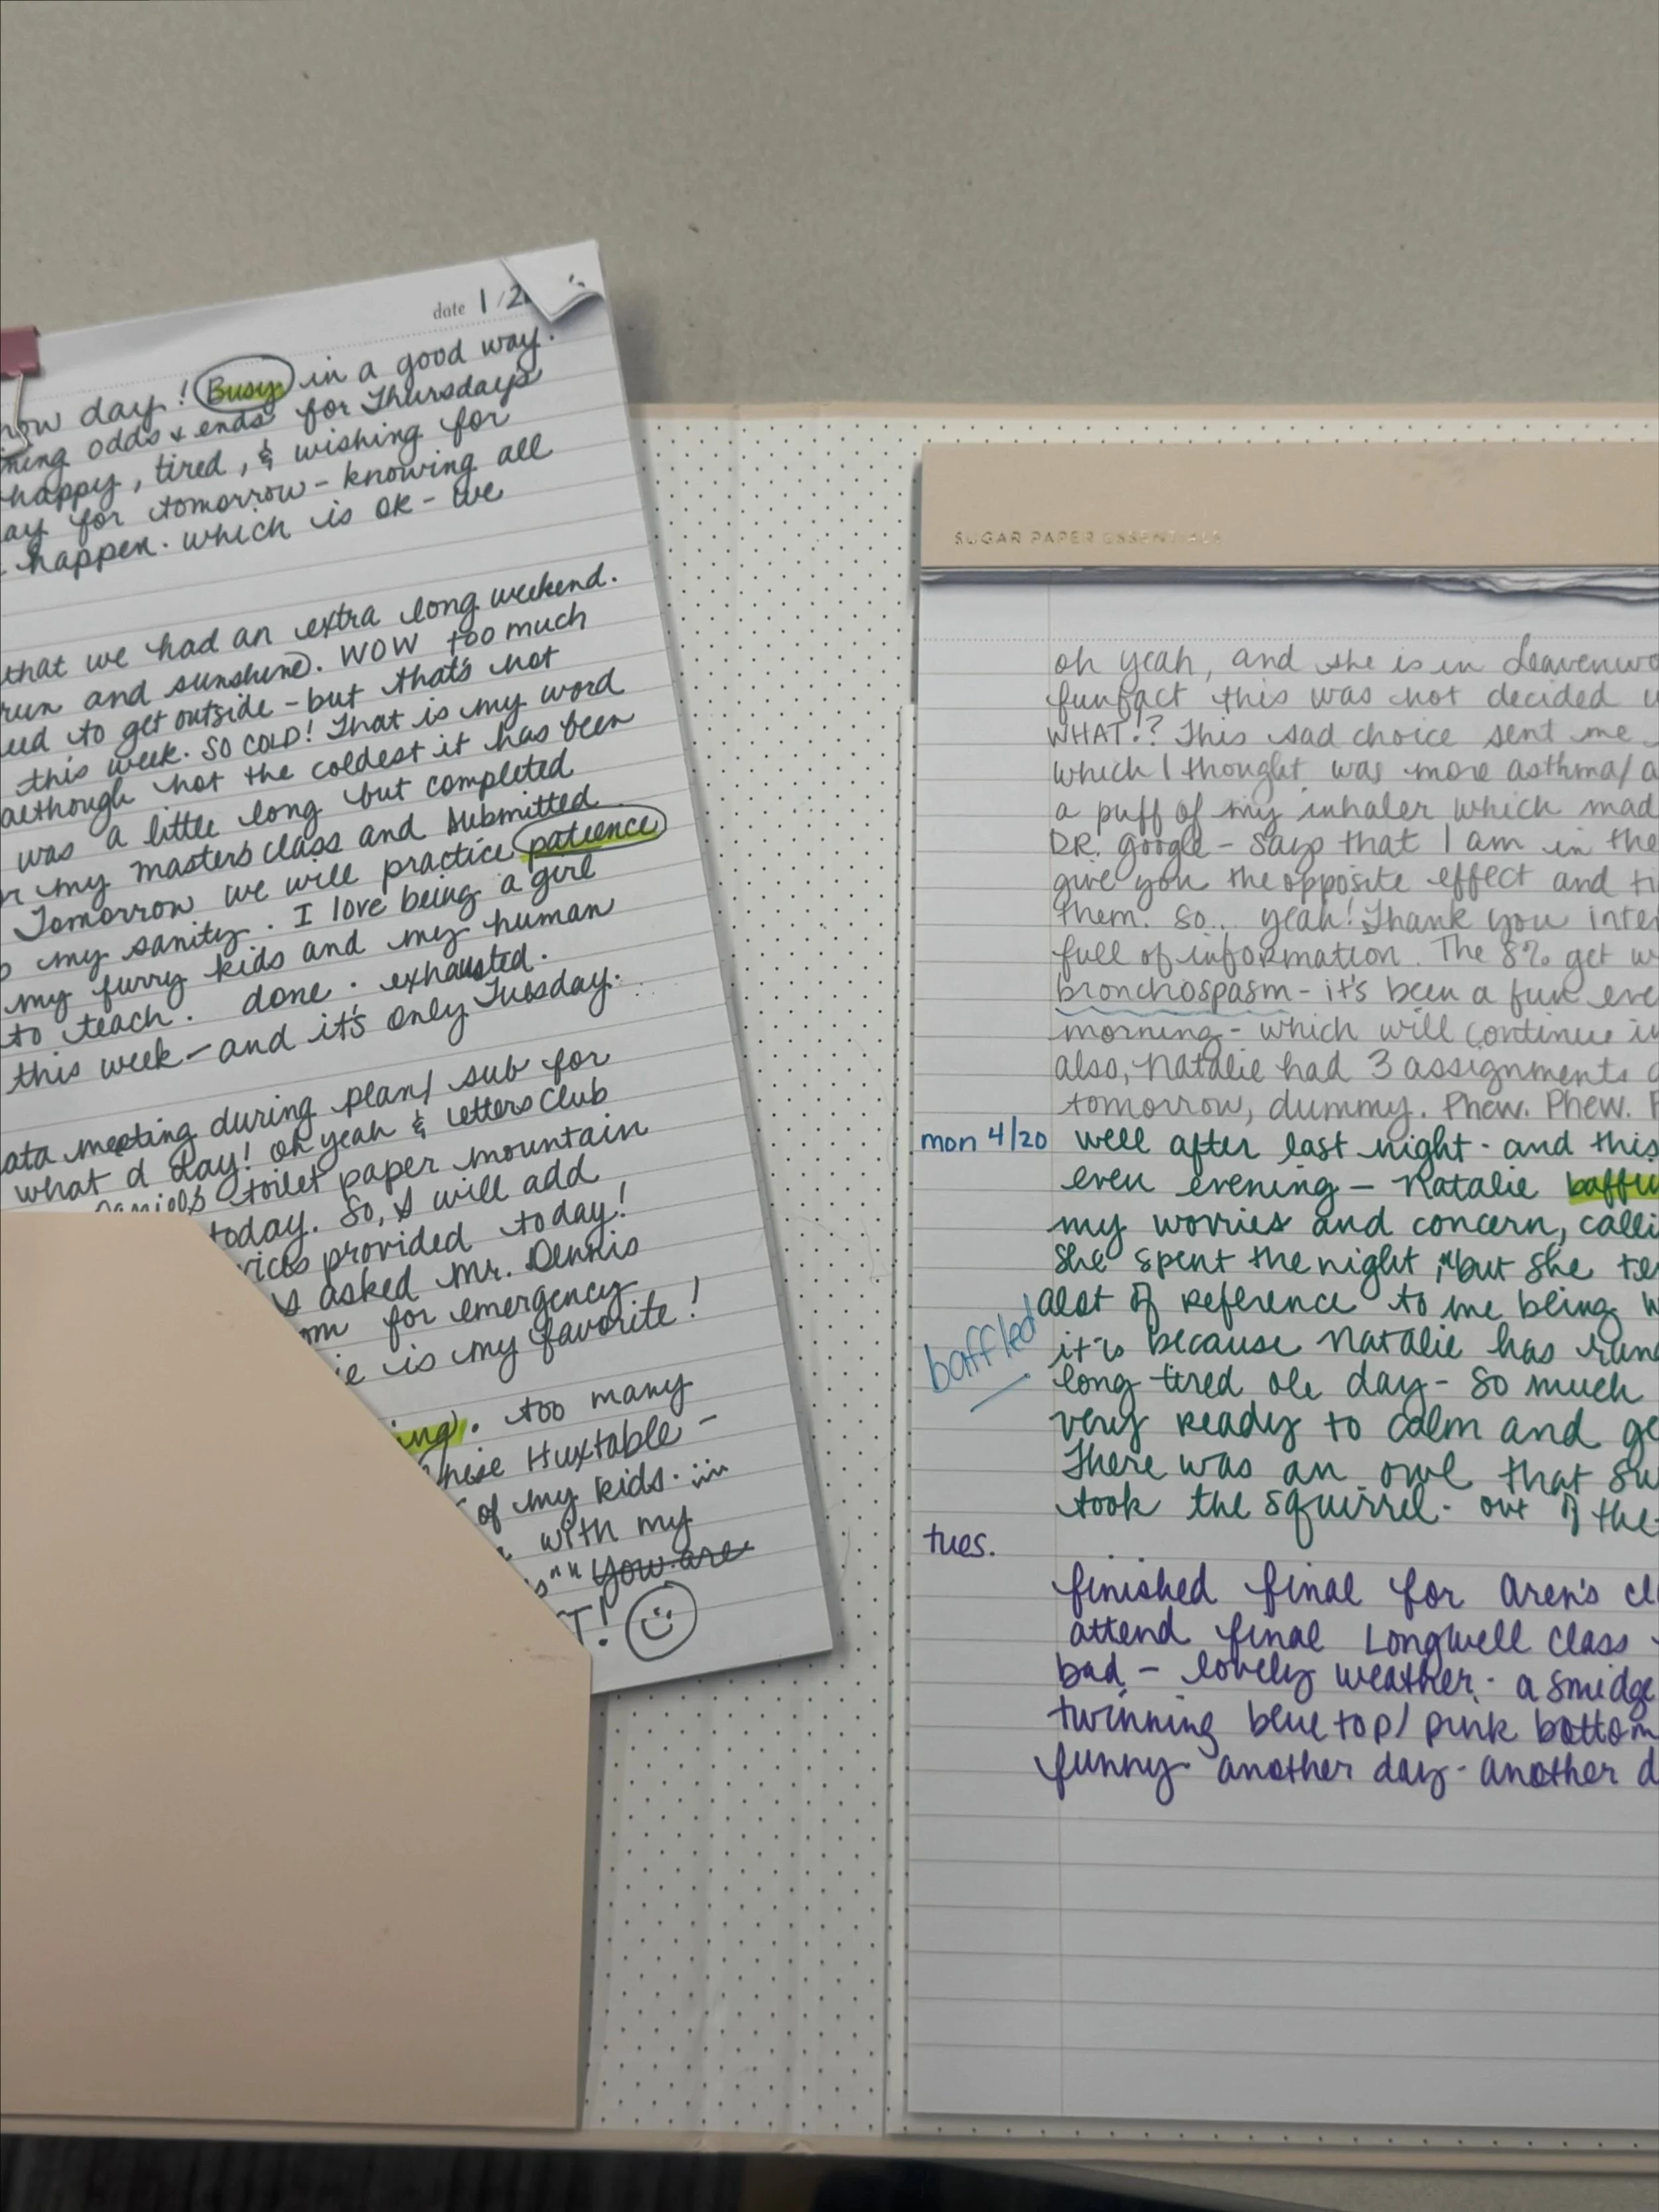 date 1/2
now day! Busy in a good way.
ning odds & ends for Thursdays
happy, tired, & wishing for
ay for tomorrow - knowing all
happen. which is ok - we
that we had an extra long weekend.
run and sunshine. WOW too much
ed to get outside - but that's not
this week. SO COLD! That is my word
although not the coldest it has been
was a little long but completed
my masters class and submitted
Tomorrow we will practice patience
my sanity. I love being a girl
my furry kids and my human
to teach. done. exhausted.
this week - and it's only Tuesday.
ata meeting during plan/ sub for
what a day! oh yeah & letters club
Daniel's toilet paper mountain
today. So, I will add
vices provided today!
asked Mr. Dennis
om for emergency
ie is my favorite!
ing. too many
Huxtable -
of my kids.
with my
" you are
T!
SUGAR PAPER ESSENTIALS
oh yeah, and she is in Leavenwo
funfact this was not decided
WHAT!? This sad choice sent me
which I thought was more asthma/ a
a puff of my inhaler which mad
DR. Google - says that I am in the
give you the opposite effect and ti
them. So... yeah! Thank you inter
full of information. The 8% get w
bronchospasm - it's been a fun eve
morning - which will continue in
also, Natalie had 3 assignments
tomorrow, dummy. Phew. Phew. P
mon 4/20 well after last night - and this
even evening - Natalie baffle
my worries and concern, calli
she spent the night, but she te
alot of reference to me being w
baffled
it's because Natalie has run
long tired ole day - so much
very ready to calm and ge
There was an owl that sw
took the squirrel. out of the
tues.
finished final for Aren's cl
attend final Longwell class
bad - lovely weather. a smidge
twinning blue top/ pink bottom
funny. another day - another d